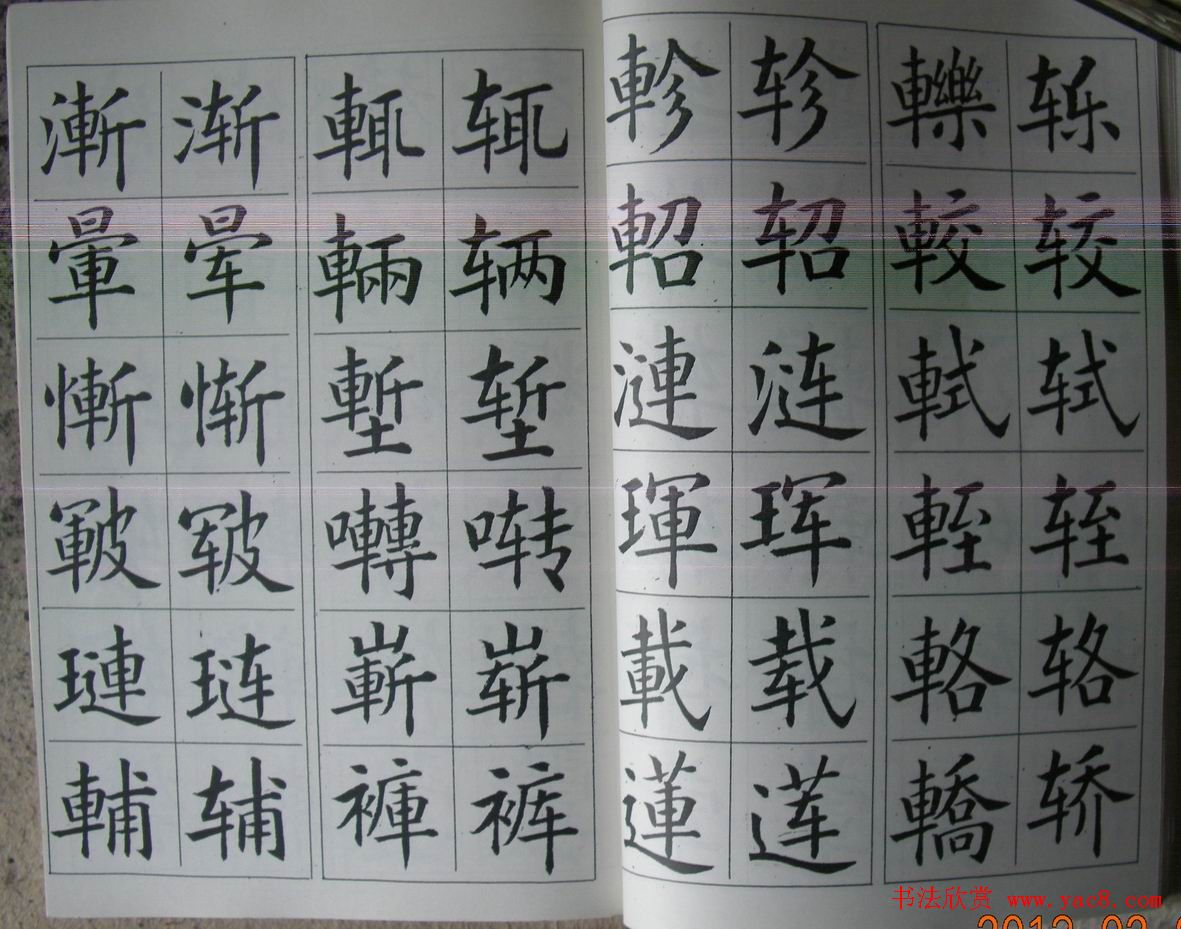 漸 渐 輒 辄
暈 晕 輛 辆
慚 惭 塹 堑
皸 皲 囀 啭
璉 琏 嶄 崭
輔 辅 褲 裤
軫 轸 轢 轹
軺 轺 較 较
漣 涟 軾 轼
琿 珲 輊 轾
載 载 輅 辂
蓮 莲 轎 轿
书法欣赏 www.yac8.com